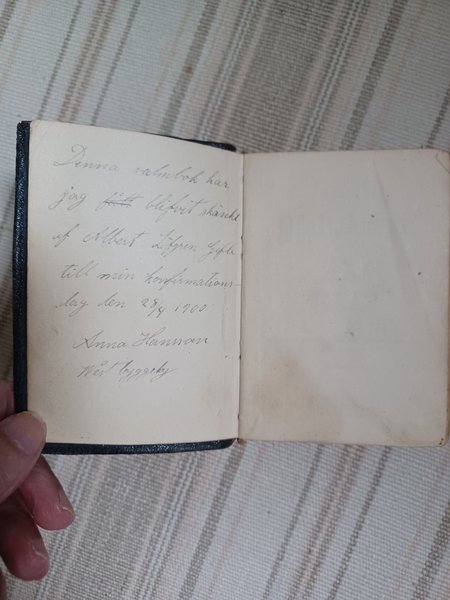 Denna salmbok har
jag fått blifvit skänkt
af Albert Löfgren Gefle
till min konfirmations-
dag den 28/4 1900
Anna Hansson
Westbyggeby